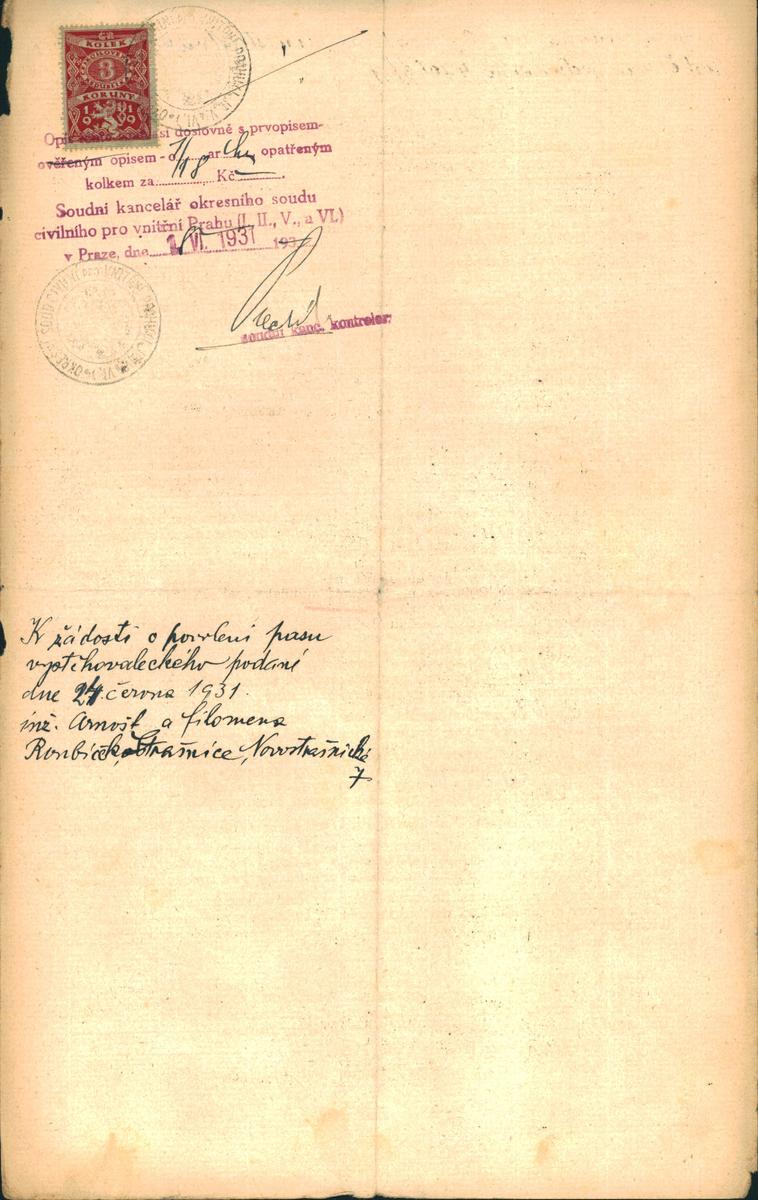 KOLEK
3
KORUNY
1919
doslovně s prvopisem-
ověřeným opisem - o 1/18 archu opatřeným
kolkem za Kč
Soudní kancelář okresního soudu
civilního pro vnitřní Prahu (I., II., V., a VI.)
v Praze, dne VI. 1931 193
soudní kanc. kontrolor.
K žádosti o povolení pasu
vystěhovaleckého podané
dne 24. června 1931.
inž. Arnošt a filomena
Strašnice, Novostrašnická
7